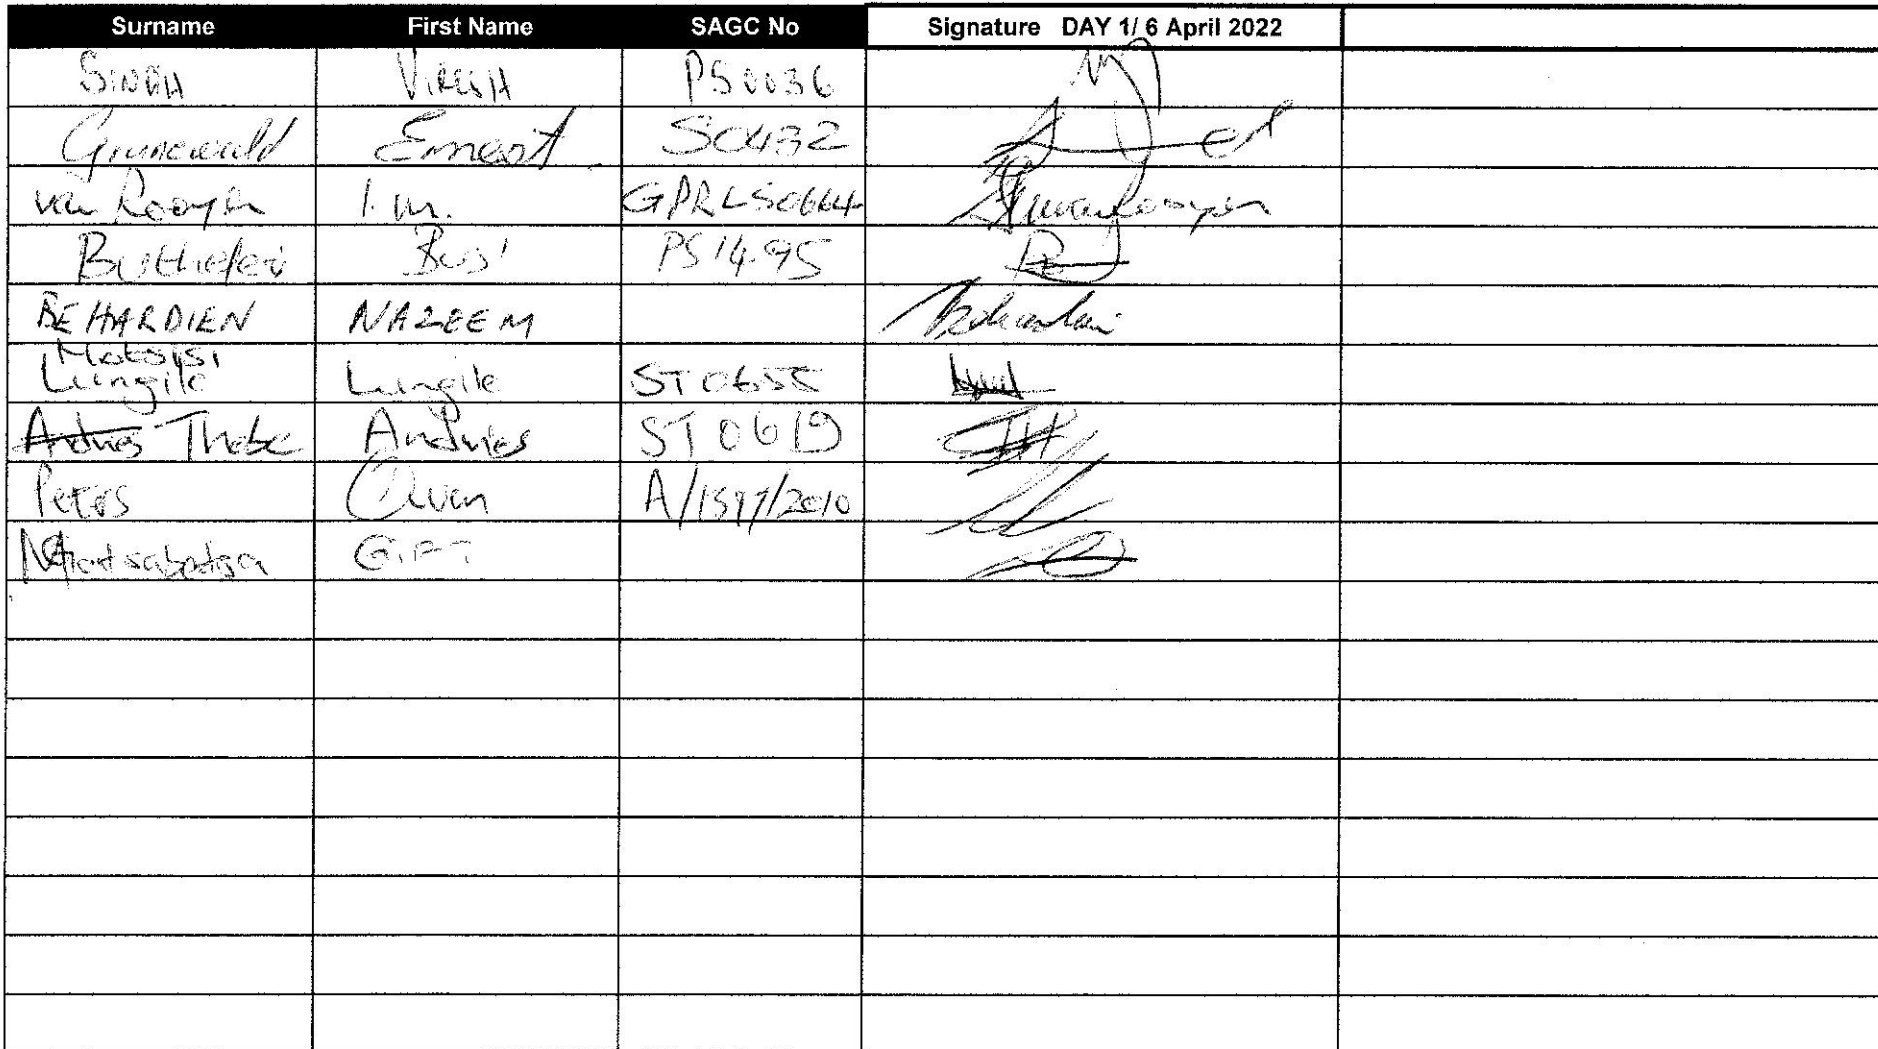 Surname First Name SAGC No Signature DAY 1/ 6 April 2022
SINGH VIRESH PS0036
Grunewald Ernest S0432
van Rooyen I.M. GPRLS0664
Buthelezi Busi PS1495
BEHARDIEN NAZEEM
Lungile Lungile ST0655
Thebe Andries ST0619
Peters A/1597/2010
GIFT